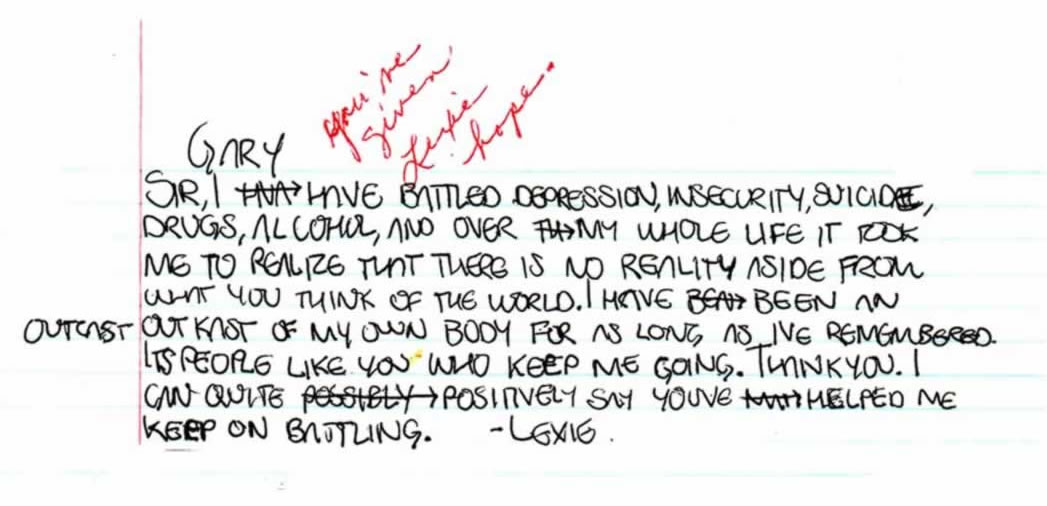 you've
given
Lexie
hope.
GARY
SIR, I HAVE BATTLED DEPRESSION, INSECURITY, SUICIDE,
DRUGS, ALCOHOL, AND OVER MY WHOLE LIFE IT TOOK
ME TO REALIZE THAT THERE IS NO REALITY ASIDE FROM
WHAT YOU THINK OF THE WORLD. I HAVE BEEN AN
OUTCAST OUTKAST OF MY OWN BODY FOR AS LONG AS IVE REMEMBERED.
ITS PEOPLE LIKE YOU WHO KEEP ME GOING. THANK YOU. I
CAN QUITE POSSIBLY POSITIVELY SAY YOUVE HELPED ME
KEEP ON BATTLING. -LEXIE.